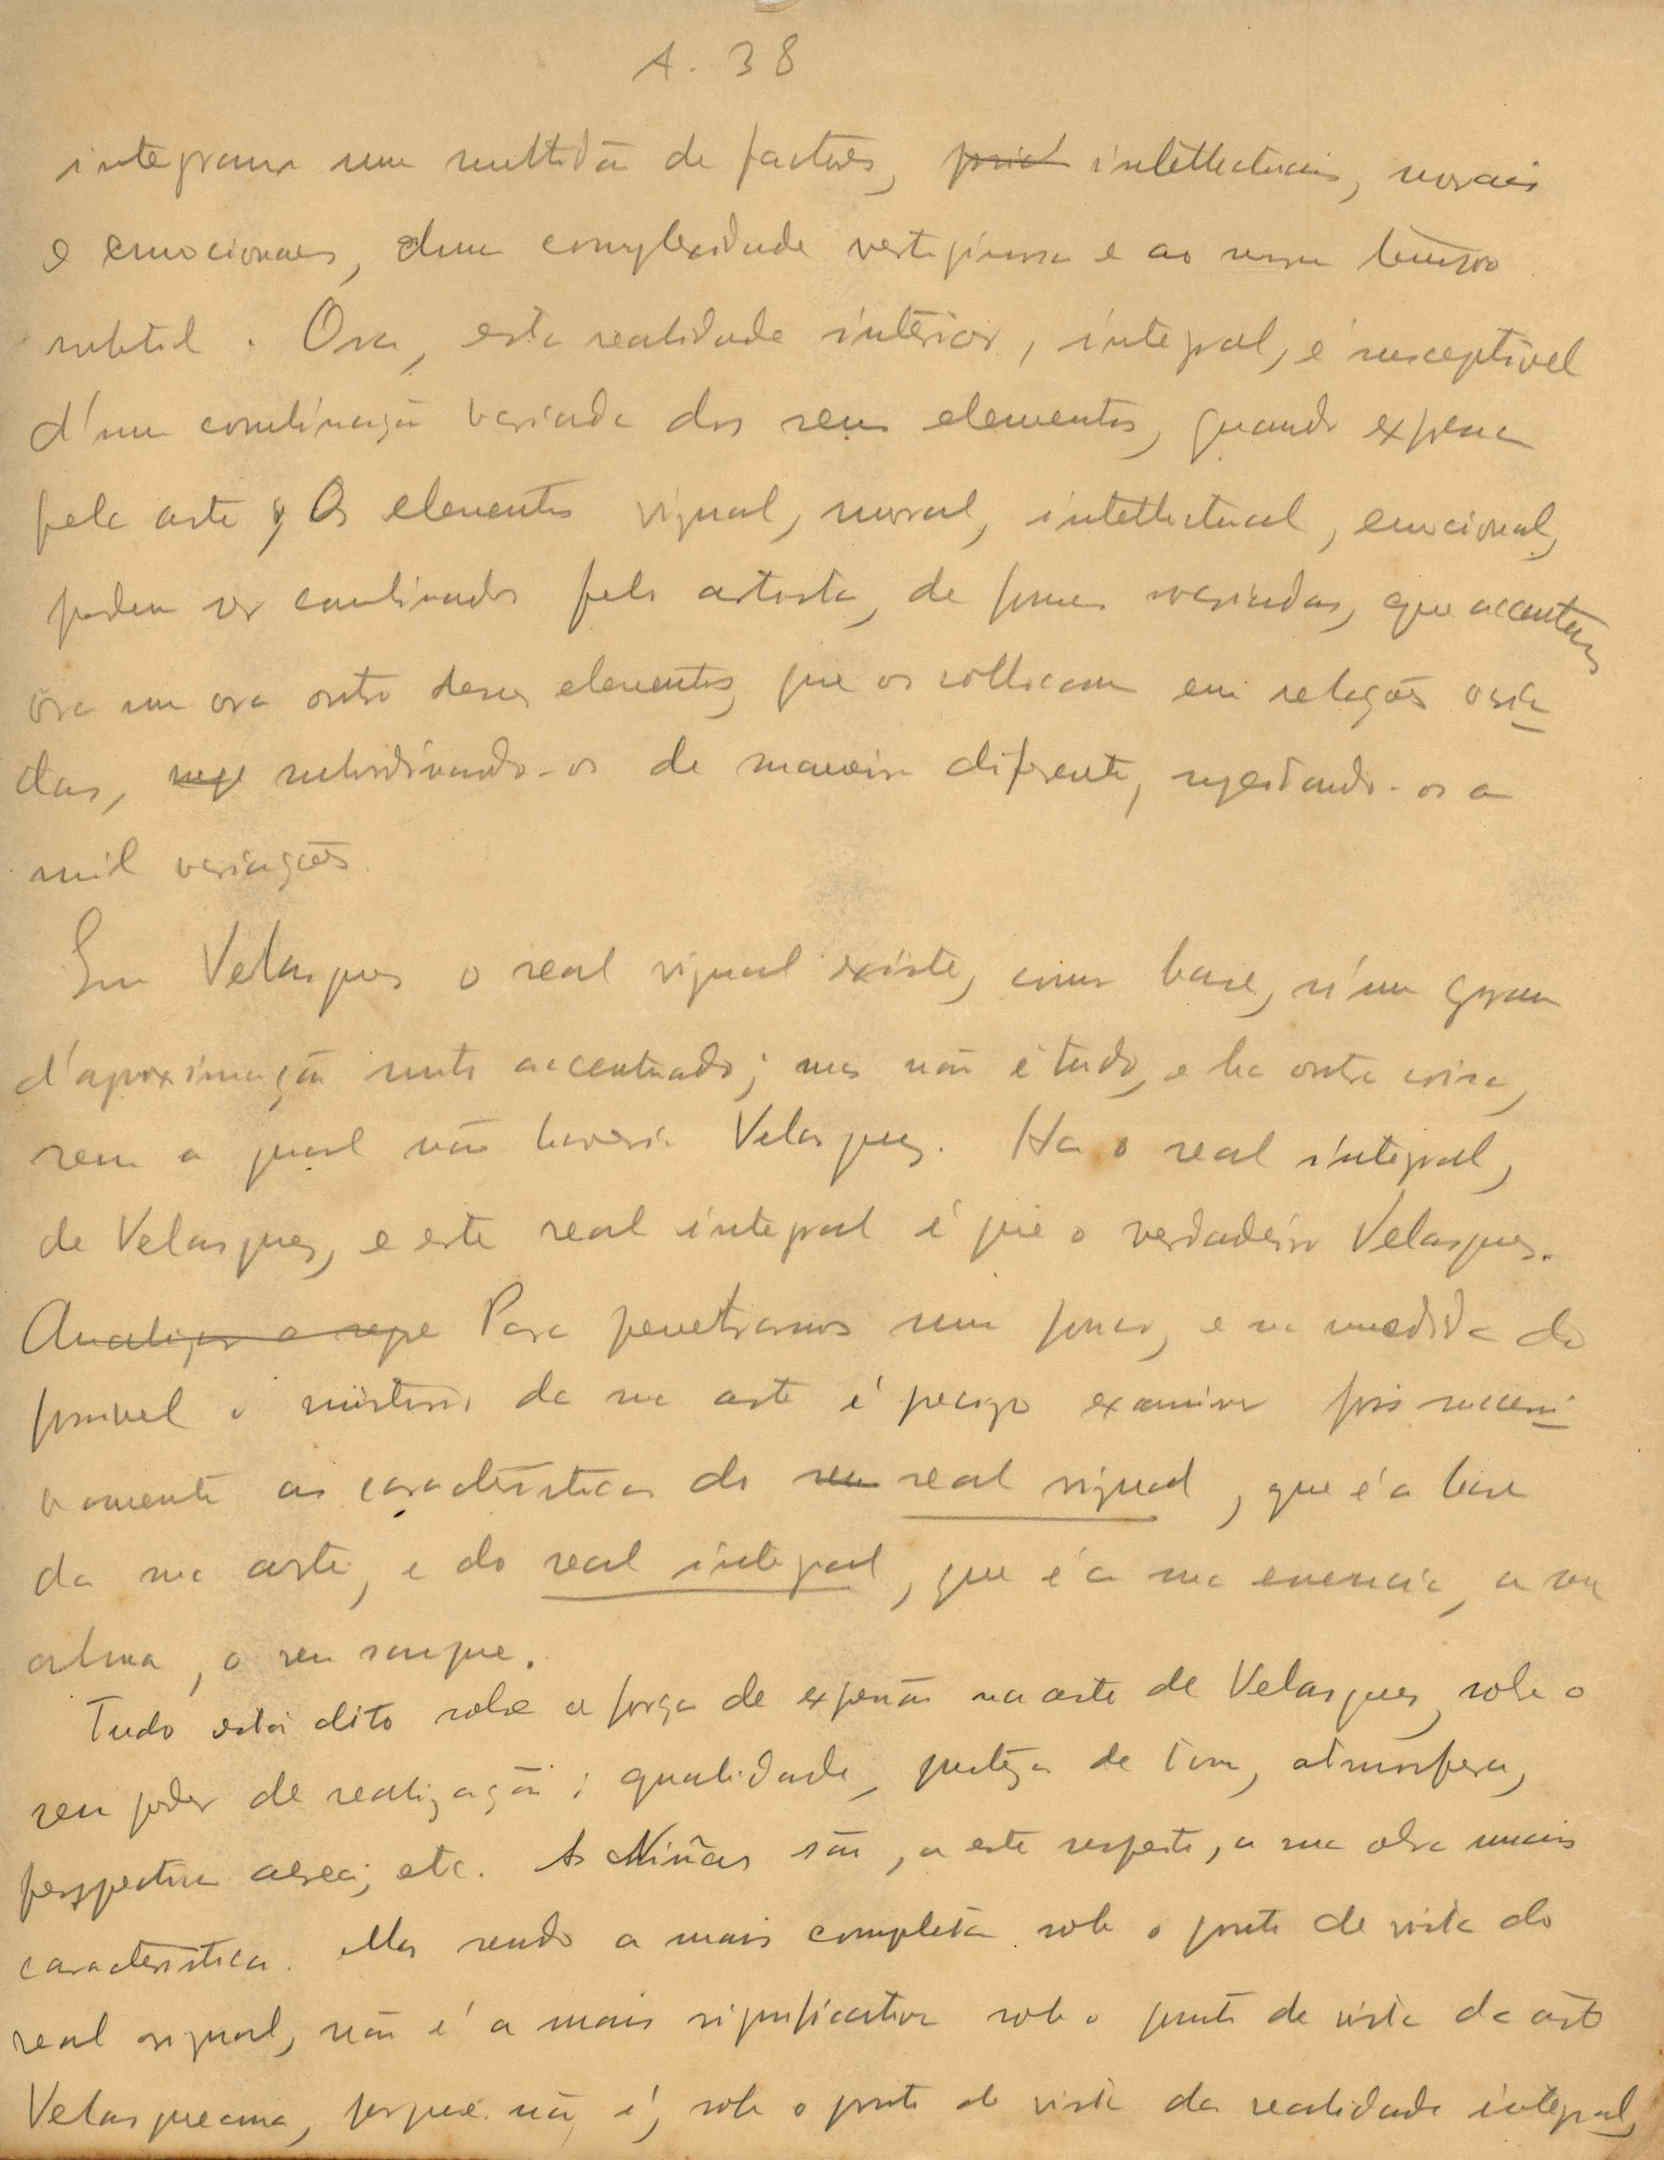 A. 38
integram uma multidão de factores, intellectuais, moraes
e emocionaes, duma complexidade vertiginosa e ao mesmo tempo
subtil. Ora, esta realidade interior, integral, é susceptivel
d'uma combinação variada dos seus elementos, quando expressa
pela arte; Os elementos visual, moral, intellectual, emocional,
podem ser combinados pelo artista, de formas variadas, que accentuam
ora um ora outro desses elementos, que os collocam em relações varia
das, subordinando-os de maneira diferente, sugeitando-os a
mil variações.
Em Velasquez o real visual existe, como base, n'um grau
d'aproximação muito accentuado; mas não é tudo, e ha outra coisa,
sem a qual não haveria Velasquez. Ha o real integral,
de Velasquez, e este real integral é que o verdadeiro Velasquez.
Analizar a Para penetrarmos um pouco, e na medida do
possivel o misterio da sua arte é preciso examinar pois successi
vamente as caracteristicas do seu real visual, que é a base
da sua arte, e do real integral, que é a sua essencia, a sua
alma, o seu sangue.
Tudo está dito sobre a força de expressão na arte de Velasquez, sobre o
seu poder de realização: qualidade, justeza de tom, atmosfera,
perspectiva aerea, etc. As Niñas são, a este respeito, a sua obra mais
caracteristica. Mas sendo a mais completa sob o ponto de vista do
real visual, não é a mais significativa sob o ponto de vista da arte
Velasqueana, porque não é, sob o ponto de vista da realidade integral,